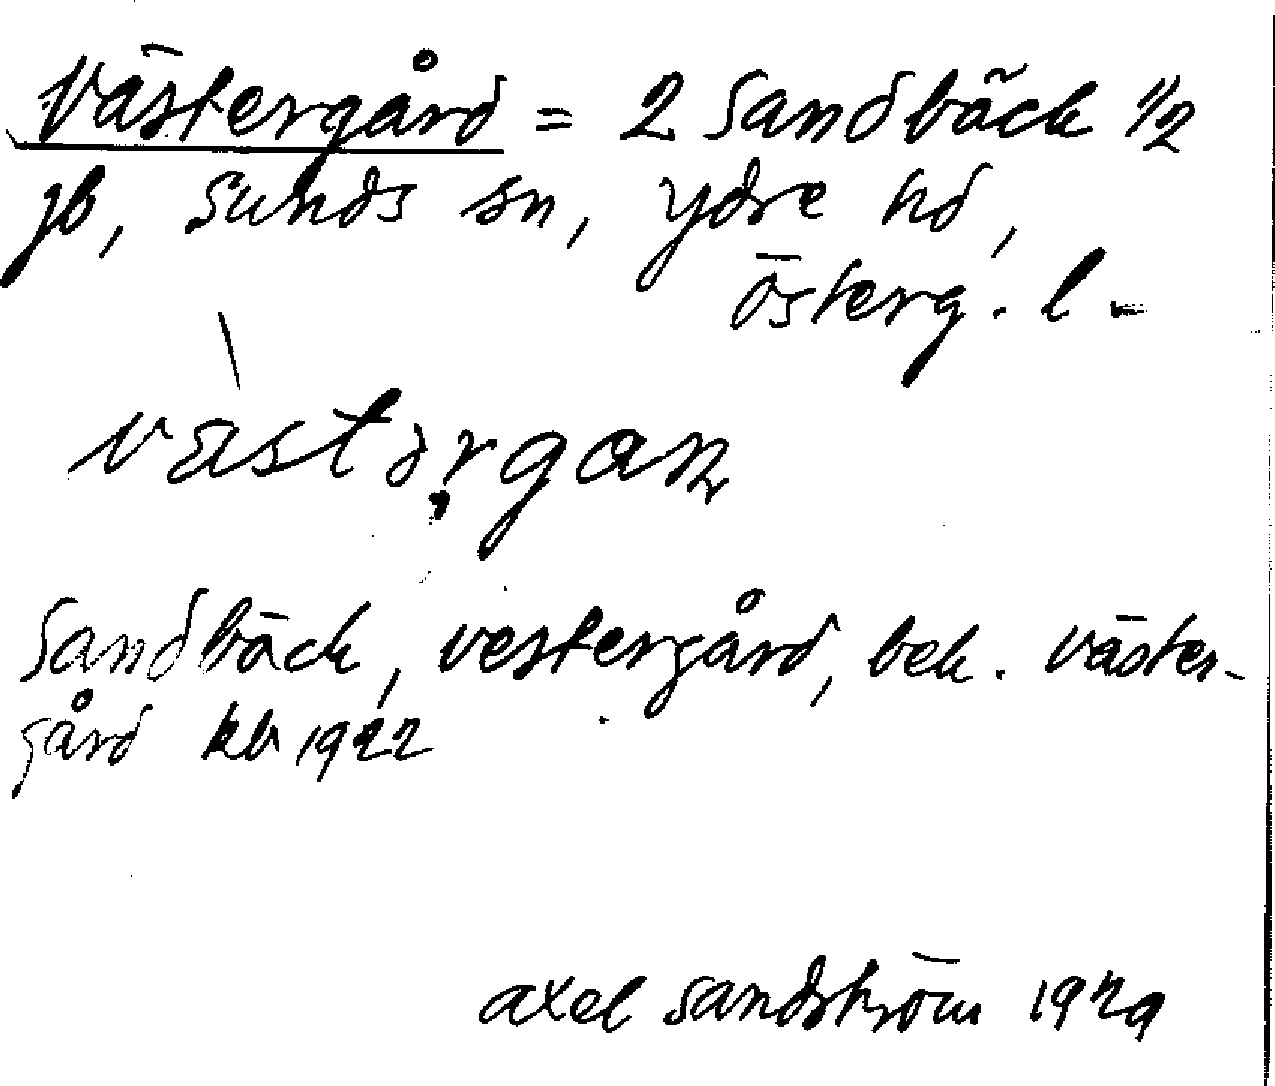 Västergård = 2 Sandbäck 1/2
jb, Sunds sn, Ydre hd,
Österg. l.
västərgan
Sandbäck, Vestergård, bek. Väster-
gård kb 1922
Axel Sandström 1929